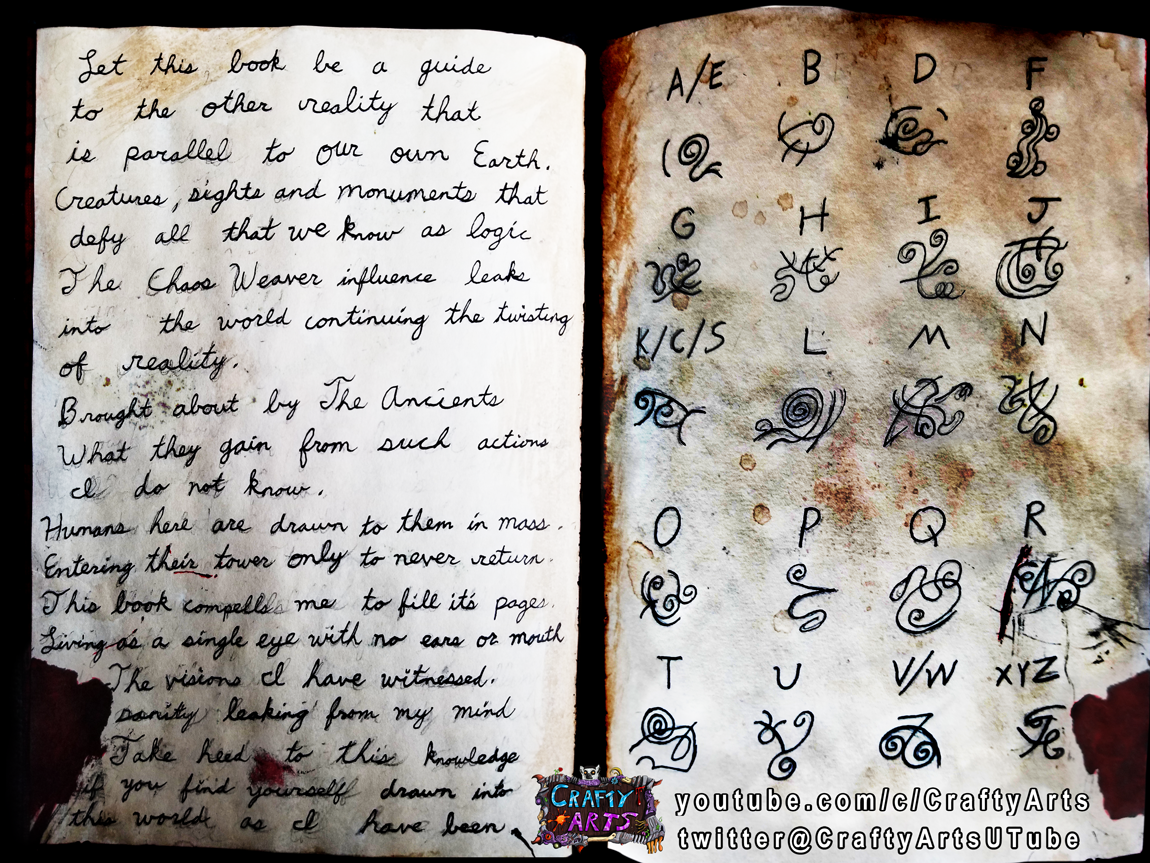 Let this book be a guide
to the other reality that
is parallel to our own Earth.
Creatures, sights and monuments that
defy all that we know as logic
The Chaos Weaver influence leaks
into the world continuing the twisting
of reality.
Brought about by The Ancients
What they gain from such actions
I do not know.
Humans here are drawn to them in mass.
Entering their tower only to never return.
This book compells me to fill it's pages.
Living as a single eye with no ears or mouth
The visions I have witnessed.
sanity leaking from my mind
Take heed to this knowledge
if you find yourself drawn into
this world as I have been.
A/E B D F
G H I J
K/C/S L M N
O P Q R
T U V/W XYZ
CRAFTY ARTS
youtube.com/c/CraftyArts
twitter@CraftyArtsUTube